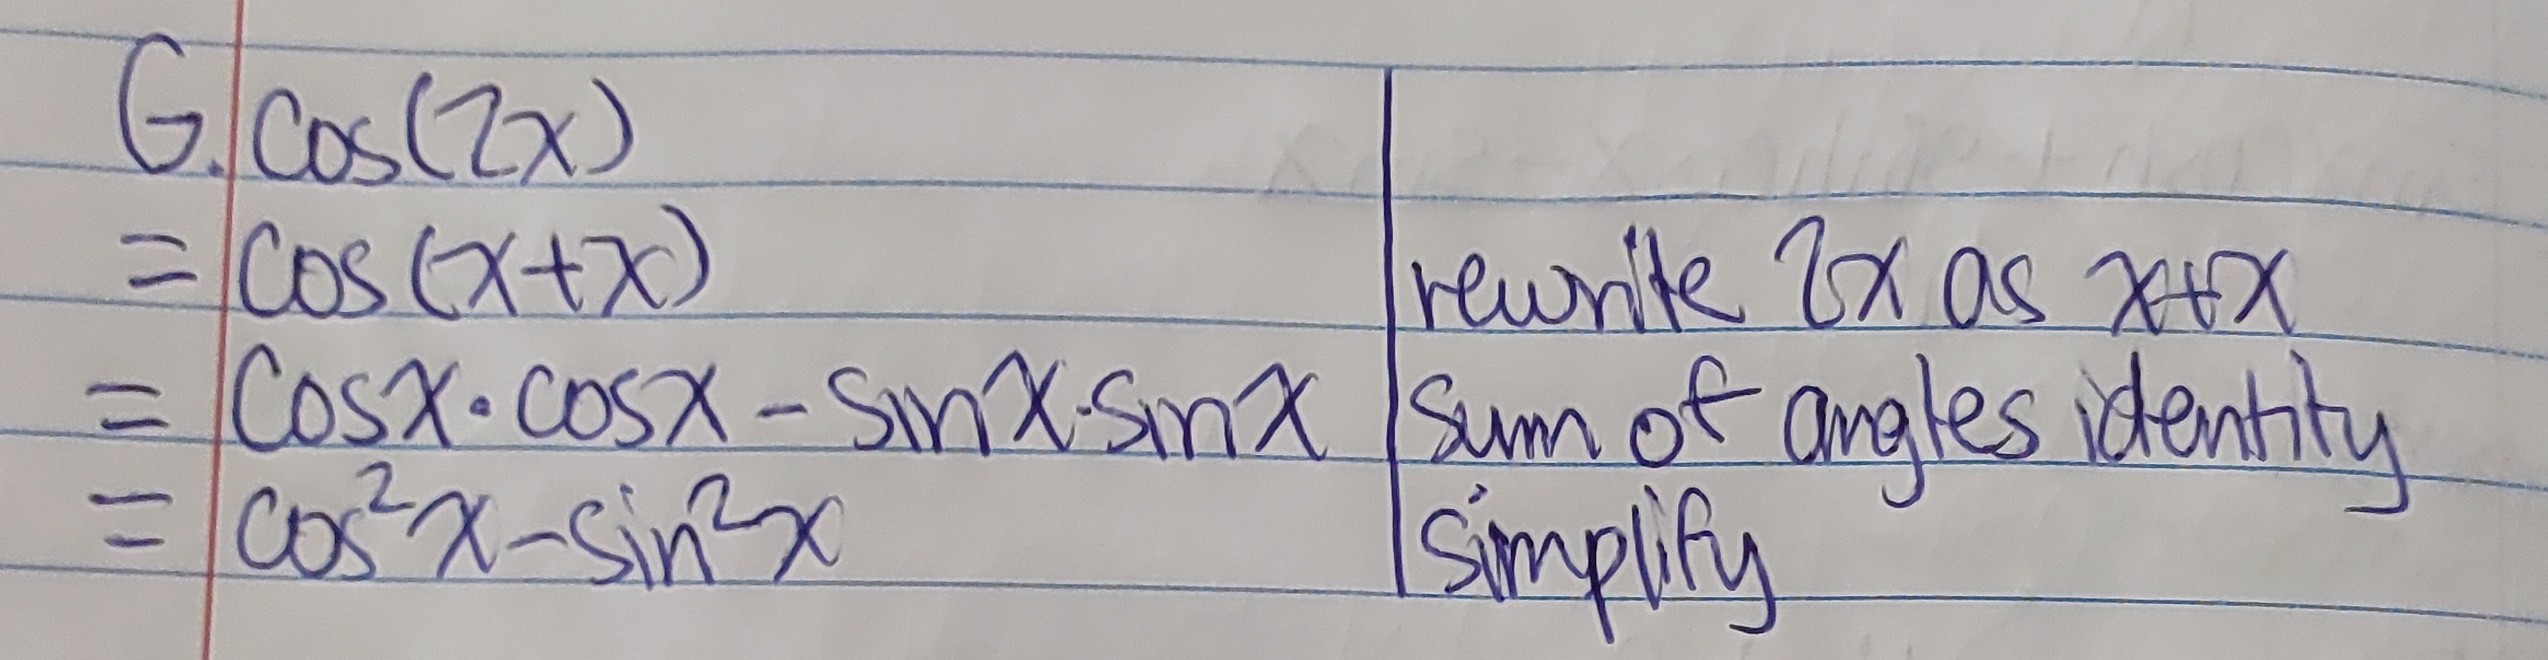 G. cos(2x)
= cos(x+x) rewrite 2x as x+x
= cosx·cosx - sinx·sinx sum of angles identity
= cos²x - sin²x simplify